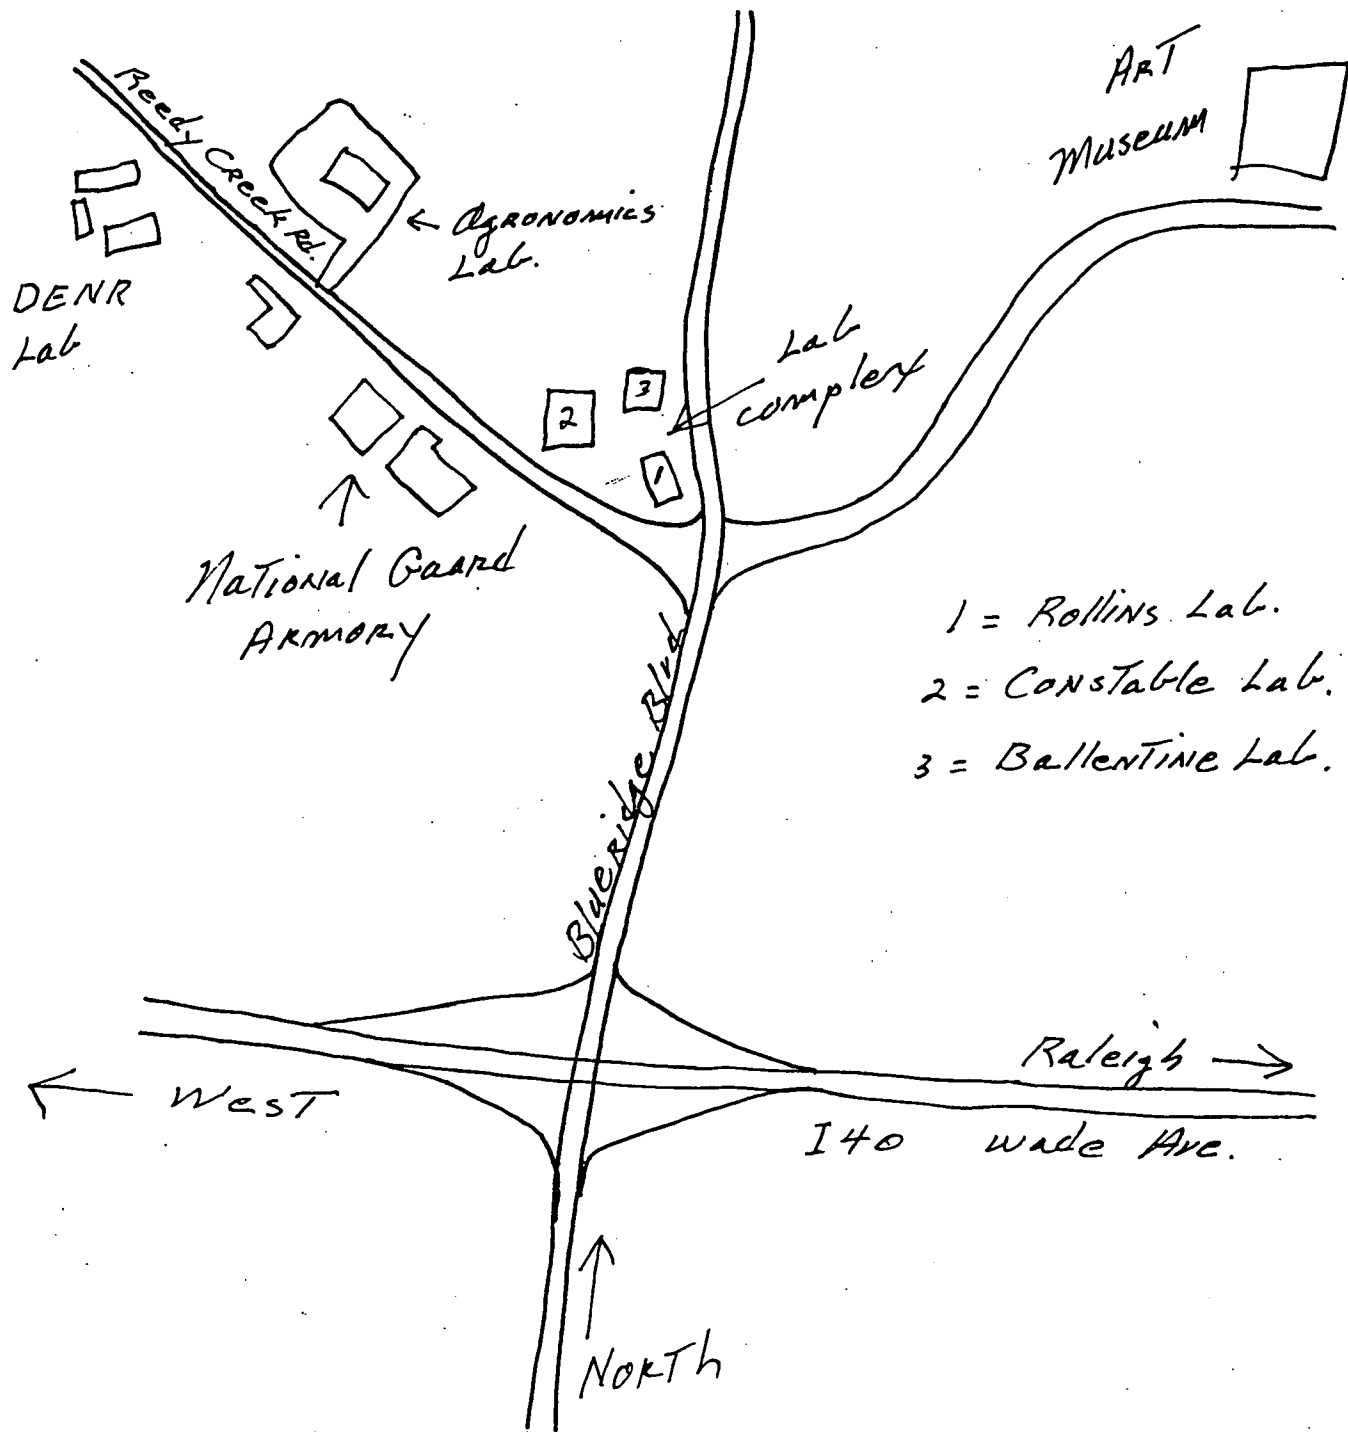 ArT
Museum
Reedy Creek Rd.
← AgRONOmics
Lab.
DENR
Lab
Lab
complex
3
2
1
NaTIONal Guard
ARMORY
1 = Rollins Lab.
2 = ConsTable Lab.
3 = BallenTine Lab.
Blueridge Blvd
Raleigh →
← WesT
I40 wade Ave.
NORTh